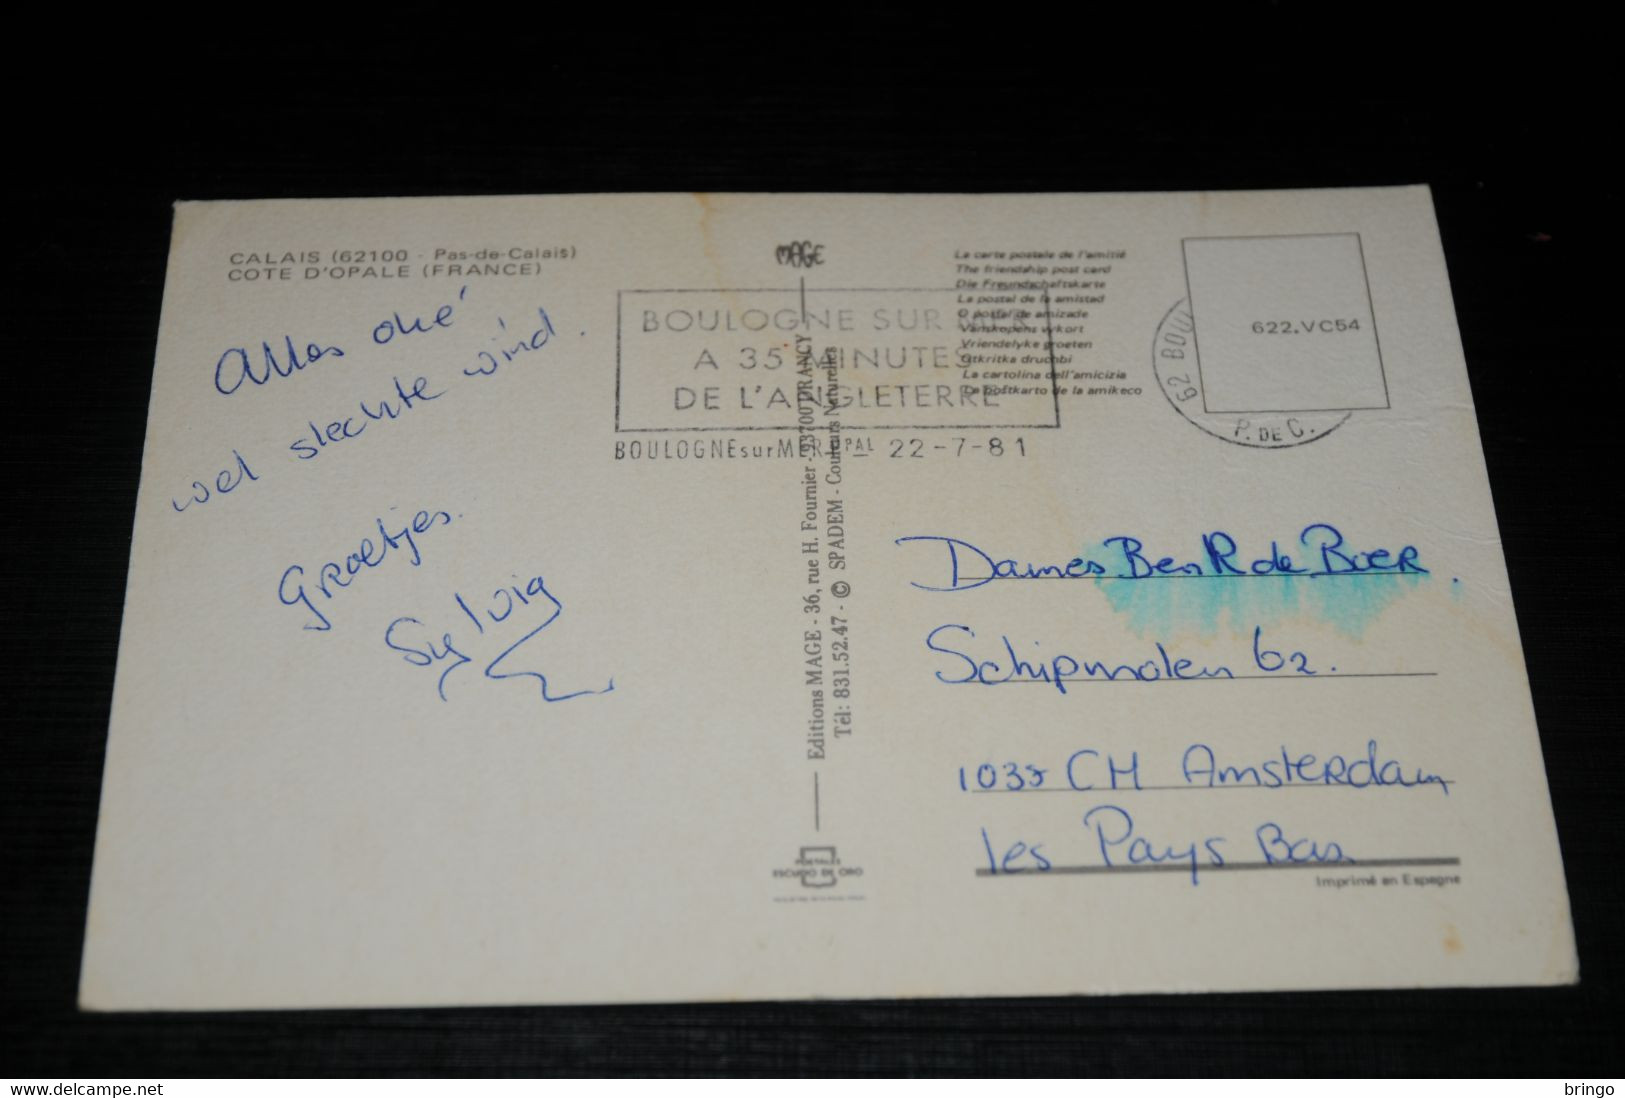 CALAIS (62100 - Pas-de-Calais)
COTE D'OPALE (FRANCE)
Alles oké
wel slechte wind.
Groetjes.
Sylvia
MAGE
Editions MAGE - 36, rue H. Fournier - 93700 DRANCY
Tél: 831.52.47 - © SPADEM - Couleurs Naturelles
POSTALES
ESCUDO DE ORO
BOULOGNE SUR MER
A 35 MINUTES
DE L'ANGLETERRE
BOULOGNE sur MER PPAL 22-7-81
La carte postale de l'amitié
The friendship post card
Die Freundschaftskarte
La postal de la amistad
O postal de amizade
Vänskapens vykort
Vriendelyke groeten
Otkritka druchbi
La cartolina dell'amicizia
La postkarto de la amikeco
62 BOUL
P. DE C.
622.VC54
Dames B en R de Boer.
Schipmolen 62.
1035 CH Amsterdam
les Pays Bas
Imprimé en Espagne
www.delcampe.net
bringo